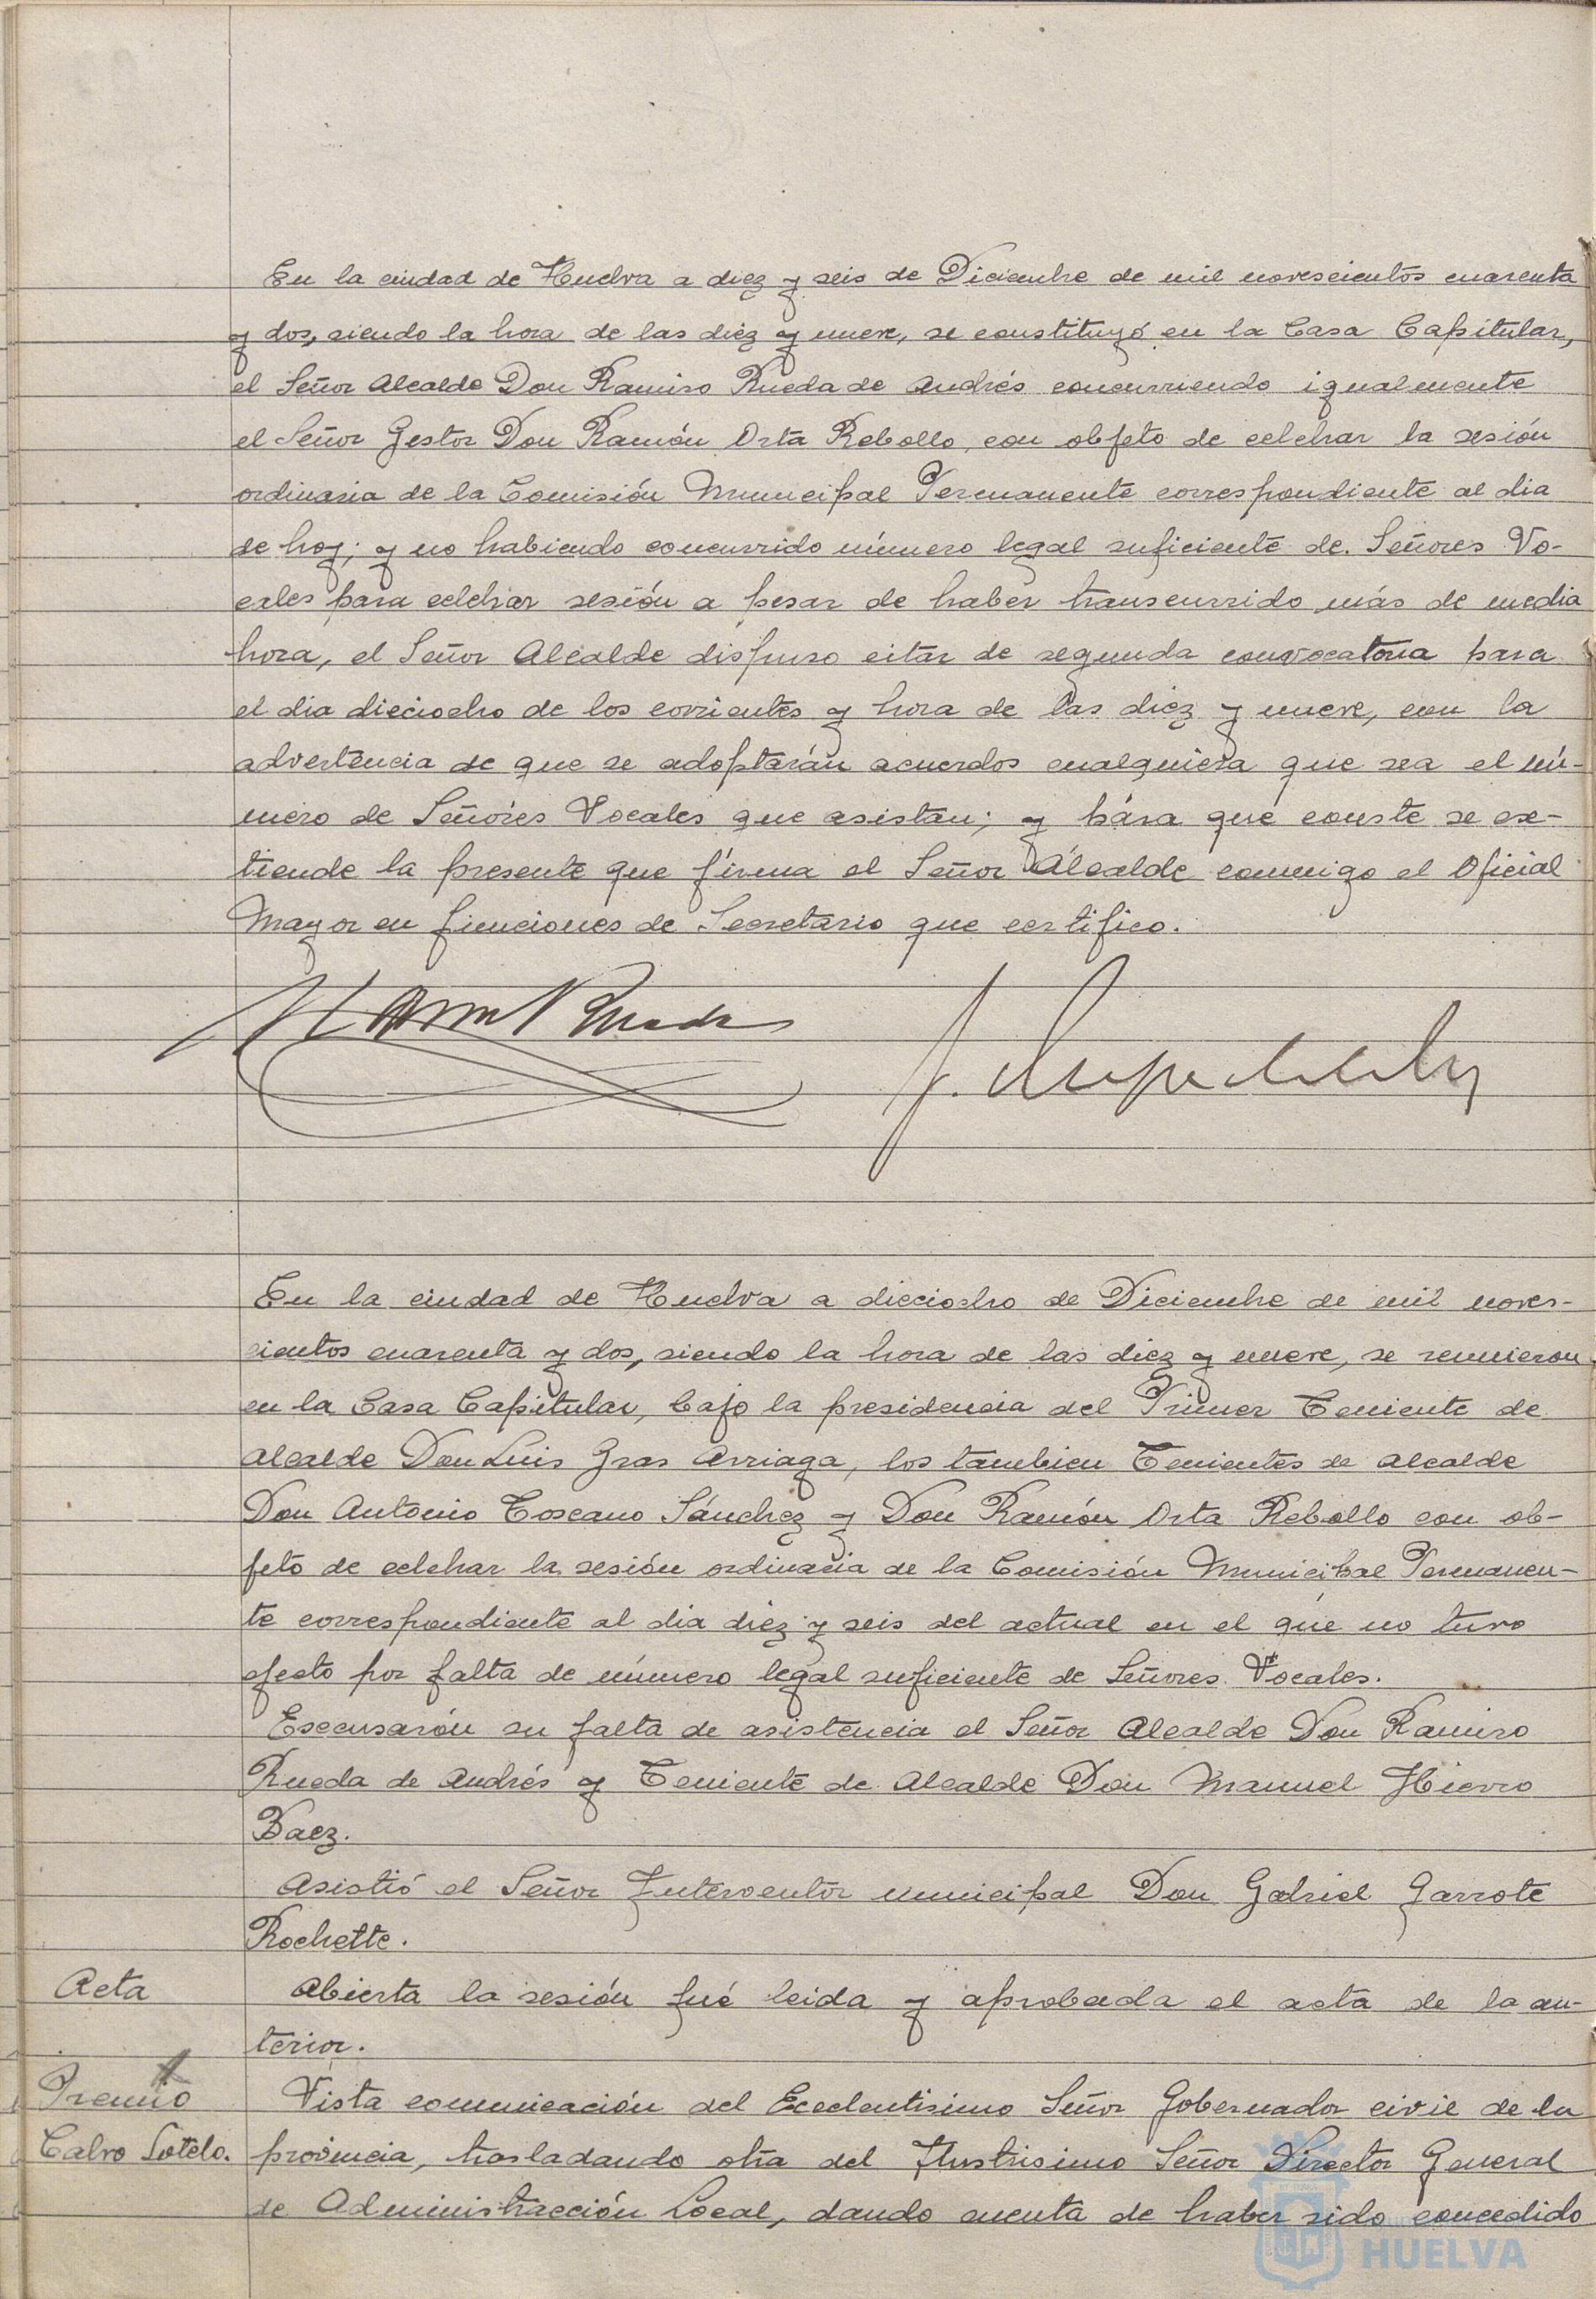 En la ciudad de Huelva a diez y seis de Diciembre de mil novescientos cuarenta
y dos, siendo la hora de las diez y nueve, se constituyó en la Casa Capitular,
el Señor Alcalde Don Ramiro Rueda de Andrés concurriendo igualmente
el Señor Gestor Don Ramón Orta Rebollo, con objeto de celebrar la sesión
ordinaria de la Comisión Municipal Permanente correspondiente al dia
de hoy; y no habiendo concurrido número legal suficiente de Señores Vo-
cales para celebrar sesión a pesar de haber transcurrido más de media
hora, el Señor Alcalde dispuso citar de segunda convocatoria para
el dia dieciocho de los corrientes y hora de las diez y nueve, con la
advertencia de que se adoptarán acuerdos cualquiera que sea el nú-
mero de Señores Vocales que asistan; y para que conste se ex-
tiende la presente que firma el Señor Alcalde conmigo el Oficial
Mayor en funciones de Secretario que certifico.
En la ciudad de Huelva a dieciocho de Diciembre de mil noves-
cientos cuarenta y dos, siendo la hora de las diez y nueve, se reunieron
en la Casa Capitular, bajo la presidencia del Primer Teniente de
Alcalde Don Luis Gras Arriaga, los tambien Tenientes de Alcalde
Don Antonio Toscano Sánchez y Don Ramón Orta Rebollo con ob-
jeto de celebrar la sesión ordinaria de la Comisión Municipal Permanen-
te correspondiente al dia diez y seis del actual en el que no tuvo
efecto por falta de número legal suficiente de Señores Vocales.
Escusarón su falta de asistencia el Señor Alcalde Don Ramiro
Rueda de Andrés y Teniente de Alcalde Don Manuel Hierro
Baez.
Asistió el Señor Interventor municipal Don Gabriel Garrote
Rochette.
Acta Abierta la sesión fué leida y aprobada el acta de la an-
terior.
Premio Vista comunicación del Ecselentisimo Señor Gobernador civil de la
Calvo Sotelo. provincia, trasladando otra del Ilustrisimo Señor Director General
de Administracción Local, dando cuenta de haber sido concedido
HUELVA